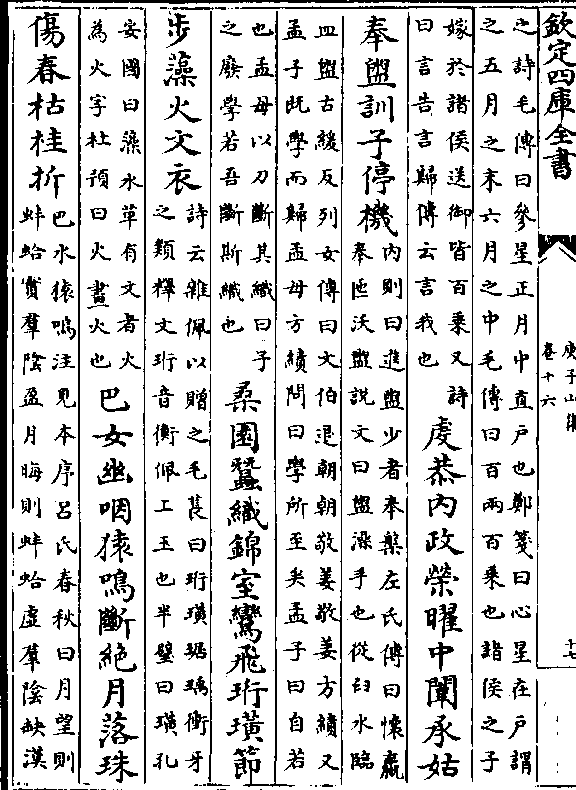 欽定四庫全書
庾子山集
卷十六
十七
之詩毛傳曰參星正月中直戶也鄭箋曰心星在戶謂
之五月之末六月之中毛傳曰百兩百乘也諸侯之子
嫁於諸侯送御皆百乘又詩
曰言告言歸傳云言我也
虔恭内政榮曜中闈承姑
奉盥訓子停機
内則曰進盥少者奉槃左氏傳曰懷嬴
奉匜沃盥説文曰盥澡手也從臼水臨
皿盥古緩反列女傳曰文伯退朝朝敬姜敬姜方績又
孟子既學而歸孟母方績問曰學所至矣孟子曰自若
也孟母以刀斷其織曰子
之廢學若吾斷斯織也
桑園蠶織錦室鸞飛珩璜節
步藻火文衣
詩云雜佩以贈之毛萇曰珩璜琚瑀衝牙
之類釋文珩音衡佩工玉也半璧曰璜孔
安國曰藻水草有文者火
為火字杜預曰火畫火也
巴女幽咽猿鳴斷絶月落珠
傷春枯桂折
巴水猿鳴注見本序吕氏春秋曰月望則
蚌蛤實羣陰盈月晦則蚌蛤虛羣陰缺漢